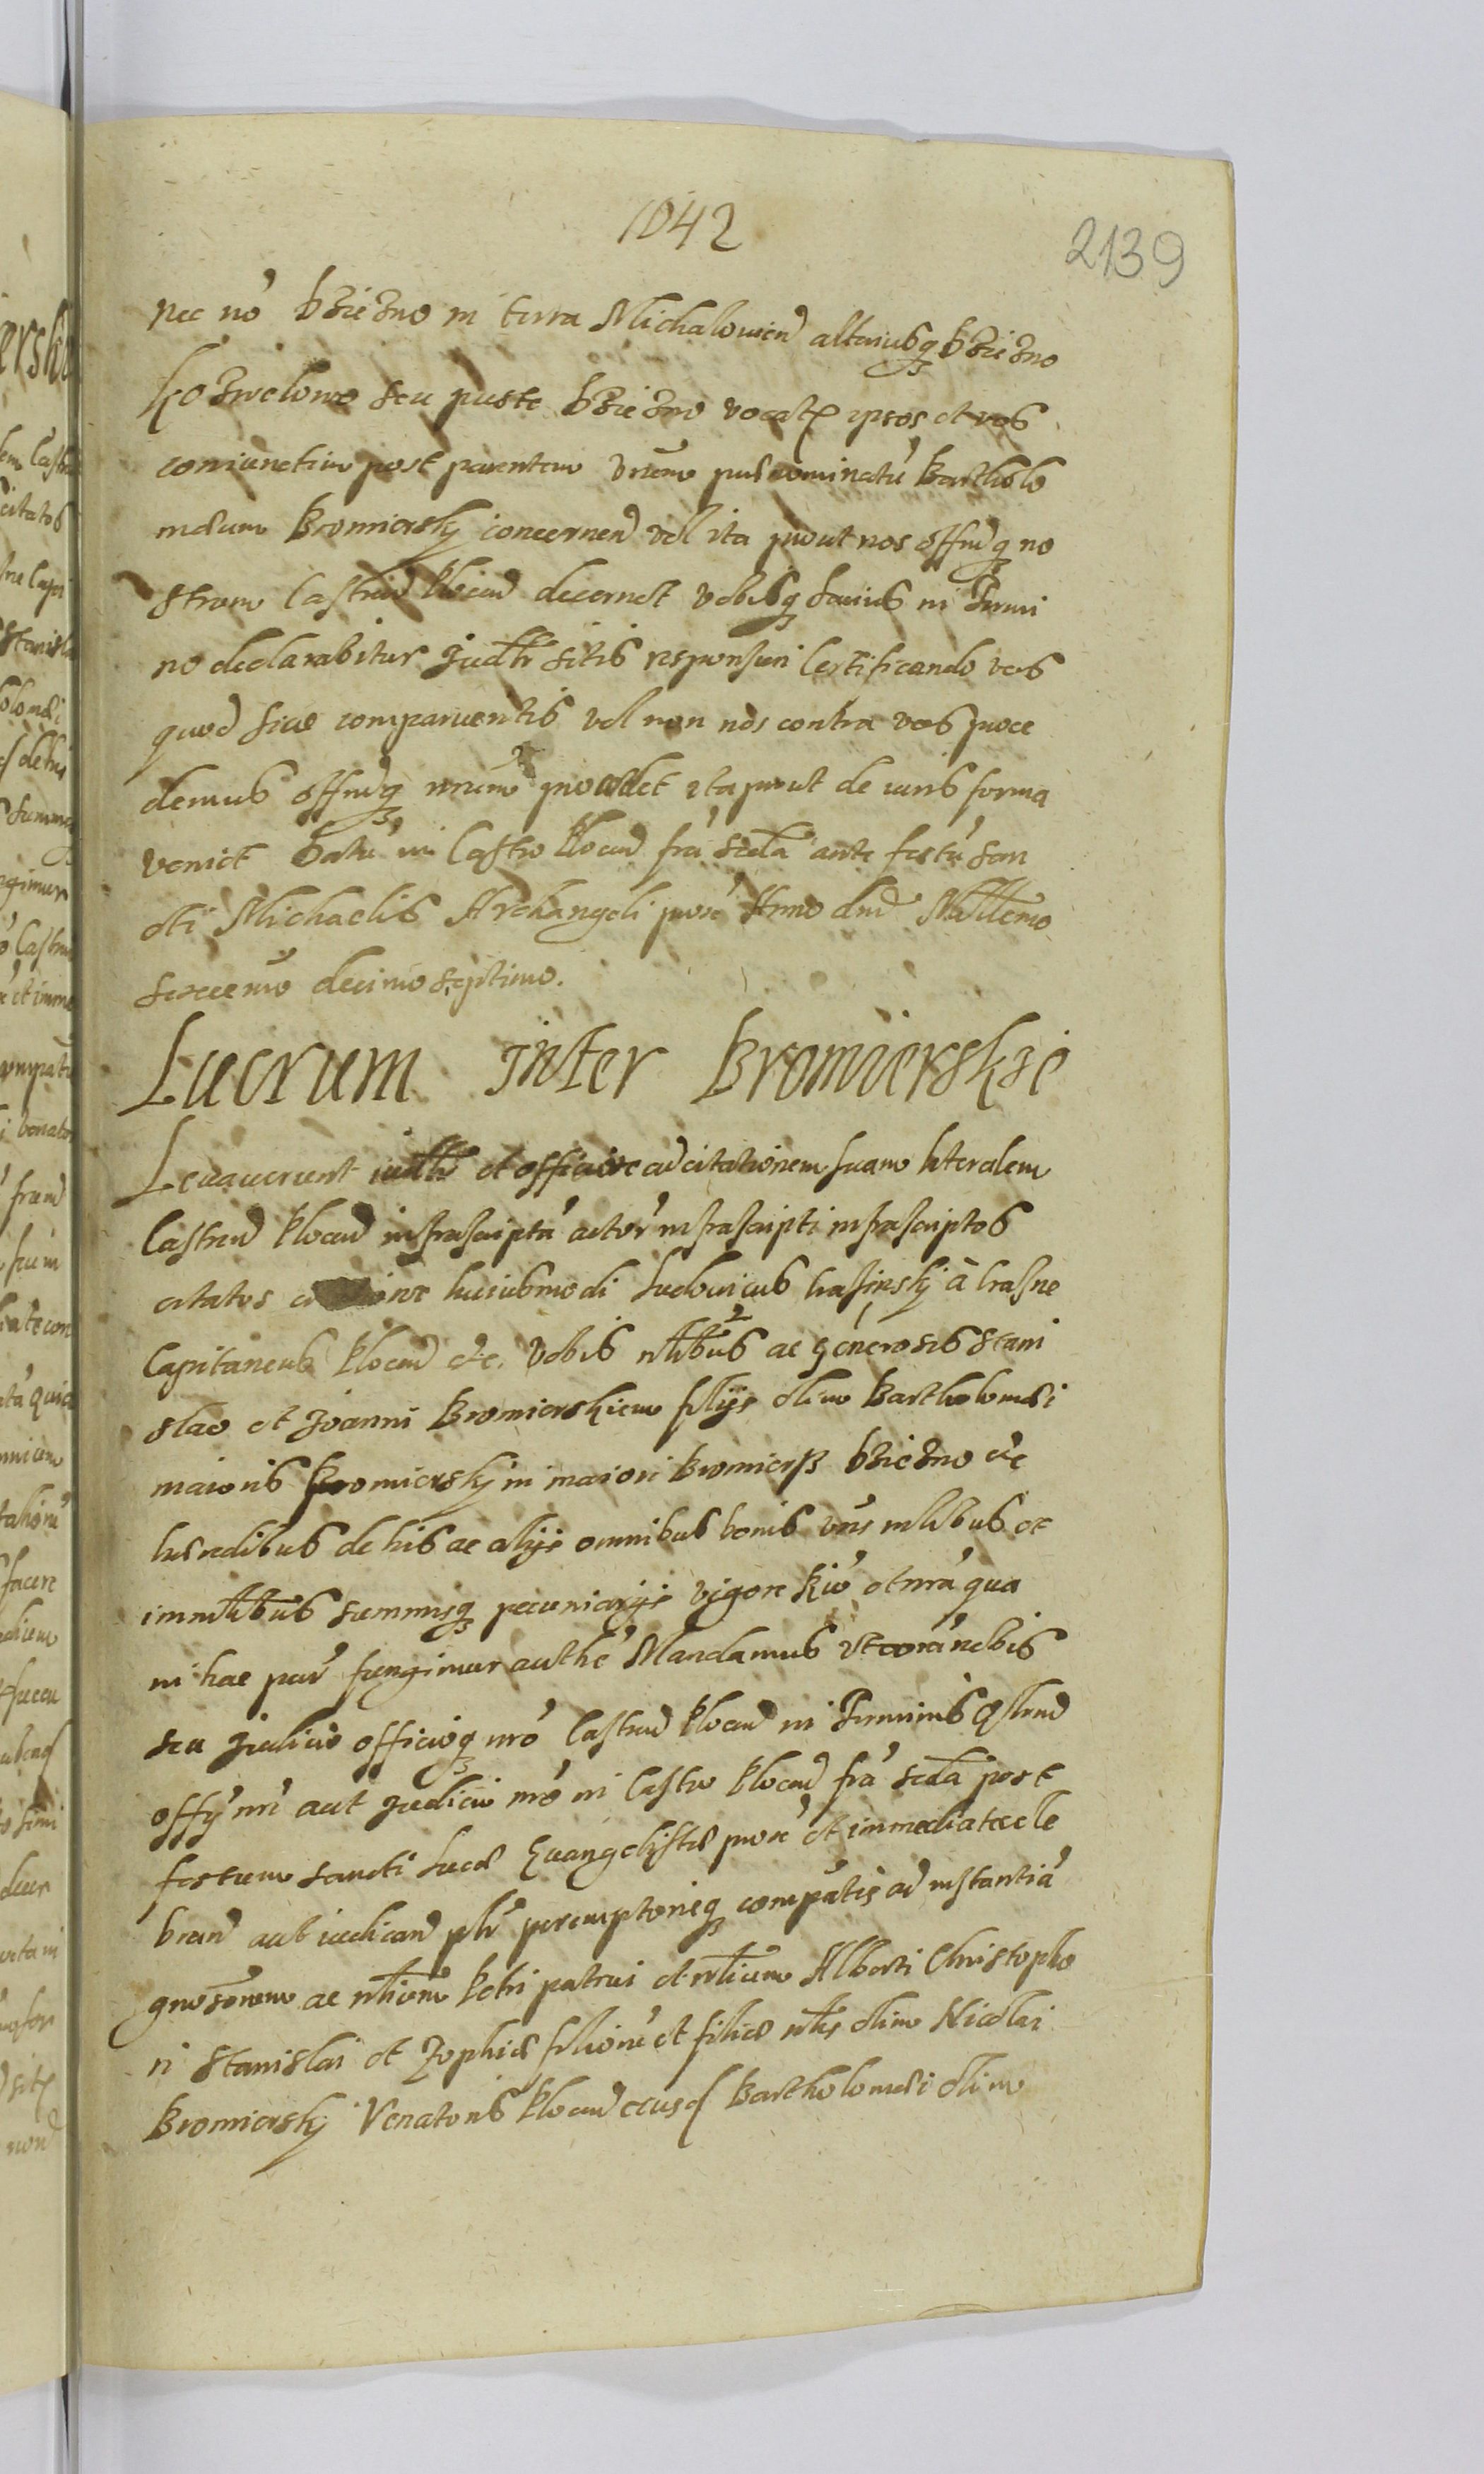 1042
2139
nec nó Brzezno in terra Michalovien alteriusq Brzezno
Kozwelowo seu puste Brzezno vocat ipsos et vos
coniunctim post parentem vrum prænominatú Bartholo
mæum Bromiersky concernen vel ita prout nos offmq no
strum Castren Plocen decernet vobisq Latius in Termi
no declarabitur Judtr sitis responsuri Certificando vos
quod sive comparueritis vel non nos contra vos proce
demus offmq nrum procedet ita prout de iuris forma
veniet Datú in Castro Plocen fra scda ante festú san
cti Michaelis Archangeli prox Anno dni Millemo
sexcenmo decimo septimo.
Lucrum Inter Bromierskie
Levaverunt iudtr et officiose ad citationem suam literalem
Castren Plocen infrascriptá actor infrascripti infrascriptos
citatos huiusmodi Ludovicus Crasinsky à Crasne
Capitaneus Plocen etc. Vobis nlibus ac generosis Stani
slao et Joanni Bromierskiem filijs olim Bartholomæi
maioris Bromiersky in maiori Bromierz Brzezno etc
hæredibus de his ac alijs omnibus bonis vris mlibus et
immlibus summisq pecuniarijs vigore Rió et nrá qua
in hac par fungimur authe Mandamus vt corá nobis
seu Judicio officioq nró Castren Plocen in Terminis Qrlend
offÿ nri aut Judicio nró in Castro Plocen fra scda post
festum sancti Lucæ Evangelistæ prox et immediate cele
bran aut iudican pltr peremptorieq compátis ad instantiá
gnosorum ac nlium Petri patrui et nlium Alberti Christopho
ri Stanislai et Zophiæ filiorú et filiæ nlis olim Nicolai
Bromiersky Venatoris Plocen eiusd Bartholomæi olim